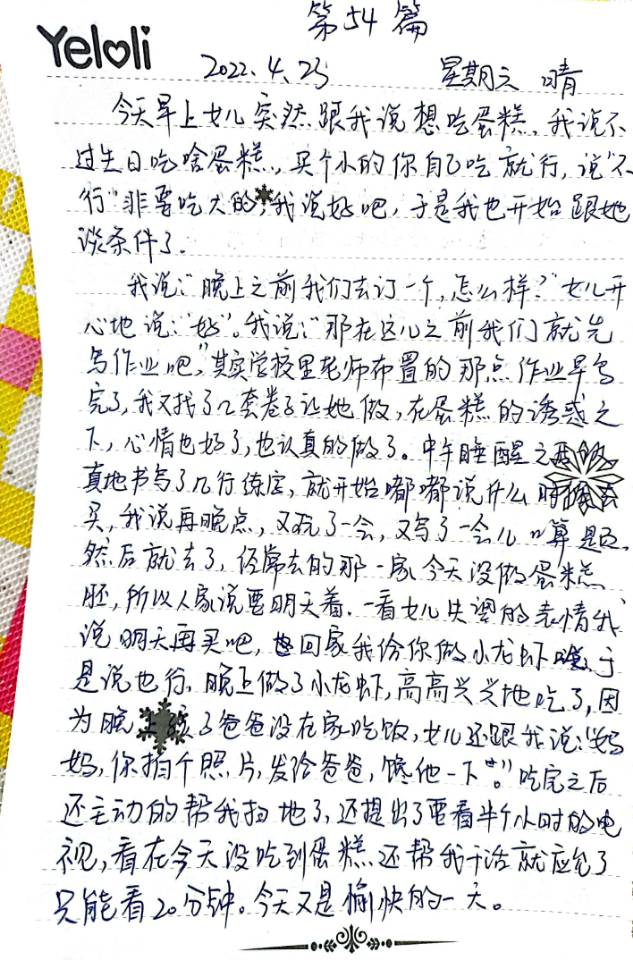 第54篇
Yeloli
2022.4.23 星期六 晴
今天早上女儿突然跟我说想吃蛋糕，我说不
过生日吃啥蛋糕，买个小的你自己吃就行，说“不
行”非要吃大的，我说好吧，于是我也开始跟她
谈条件了。
我说：“晚上之前我们去订一个，怎么样？”女儿开
心地说：“好”。我说：“那在这儿之前我们就先
写作业吧，”其实学校里老师布置的那点作业早写
完了，我又找了几套卷子让她做，在蛋糕的诱惑之
下，心情也好了，也认真的做了。中午睡醒之
真地书写了几行练字，就开始嘟嘟说什么时候去
买，我说再晚点，又玩了一会，又写了一会儿口算题，
然后就去了，经常去的那一家今天没做蛋糕
胚，所以人家说要明天着，一看女儿失望的表情我
说明天再买吧，回家我给你做小龙虾 于
是说也行，晚上做了小龙虾，高高兴兴地吃了，因
为晚上孩子爸爸没在家吃饭，女儿还跟我说：“妈
妈，你拍个照片，发给爸爸，馋他一下”。吃完之后
还主动的帮我扫地了，还提出了要看半个小时的电
视，看在今天没吃到蛋糕还帮我干活就应允了
只能看20分钟。今天又是愉快的一天。